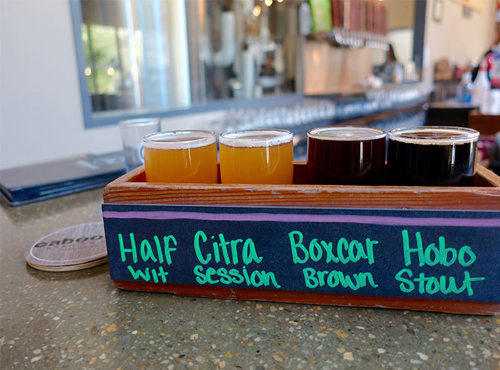 Half Citra Boxcar Hobo
Wit Session Brown Stout
caboo